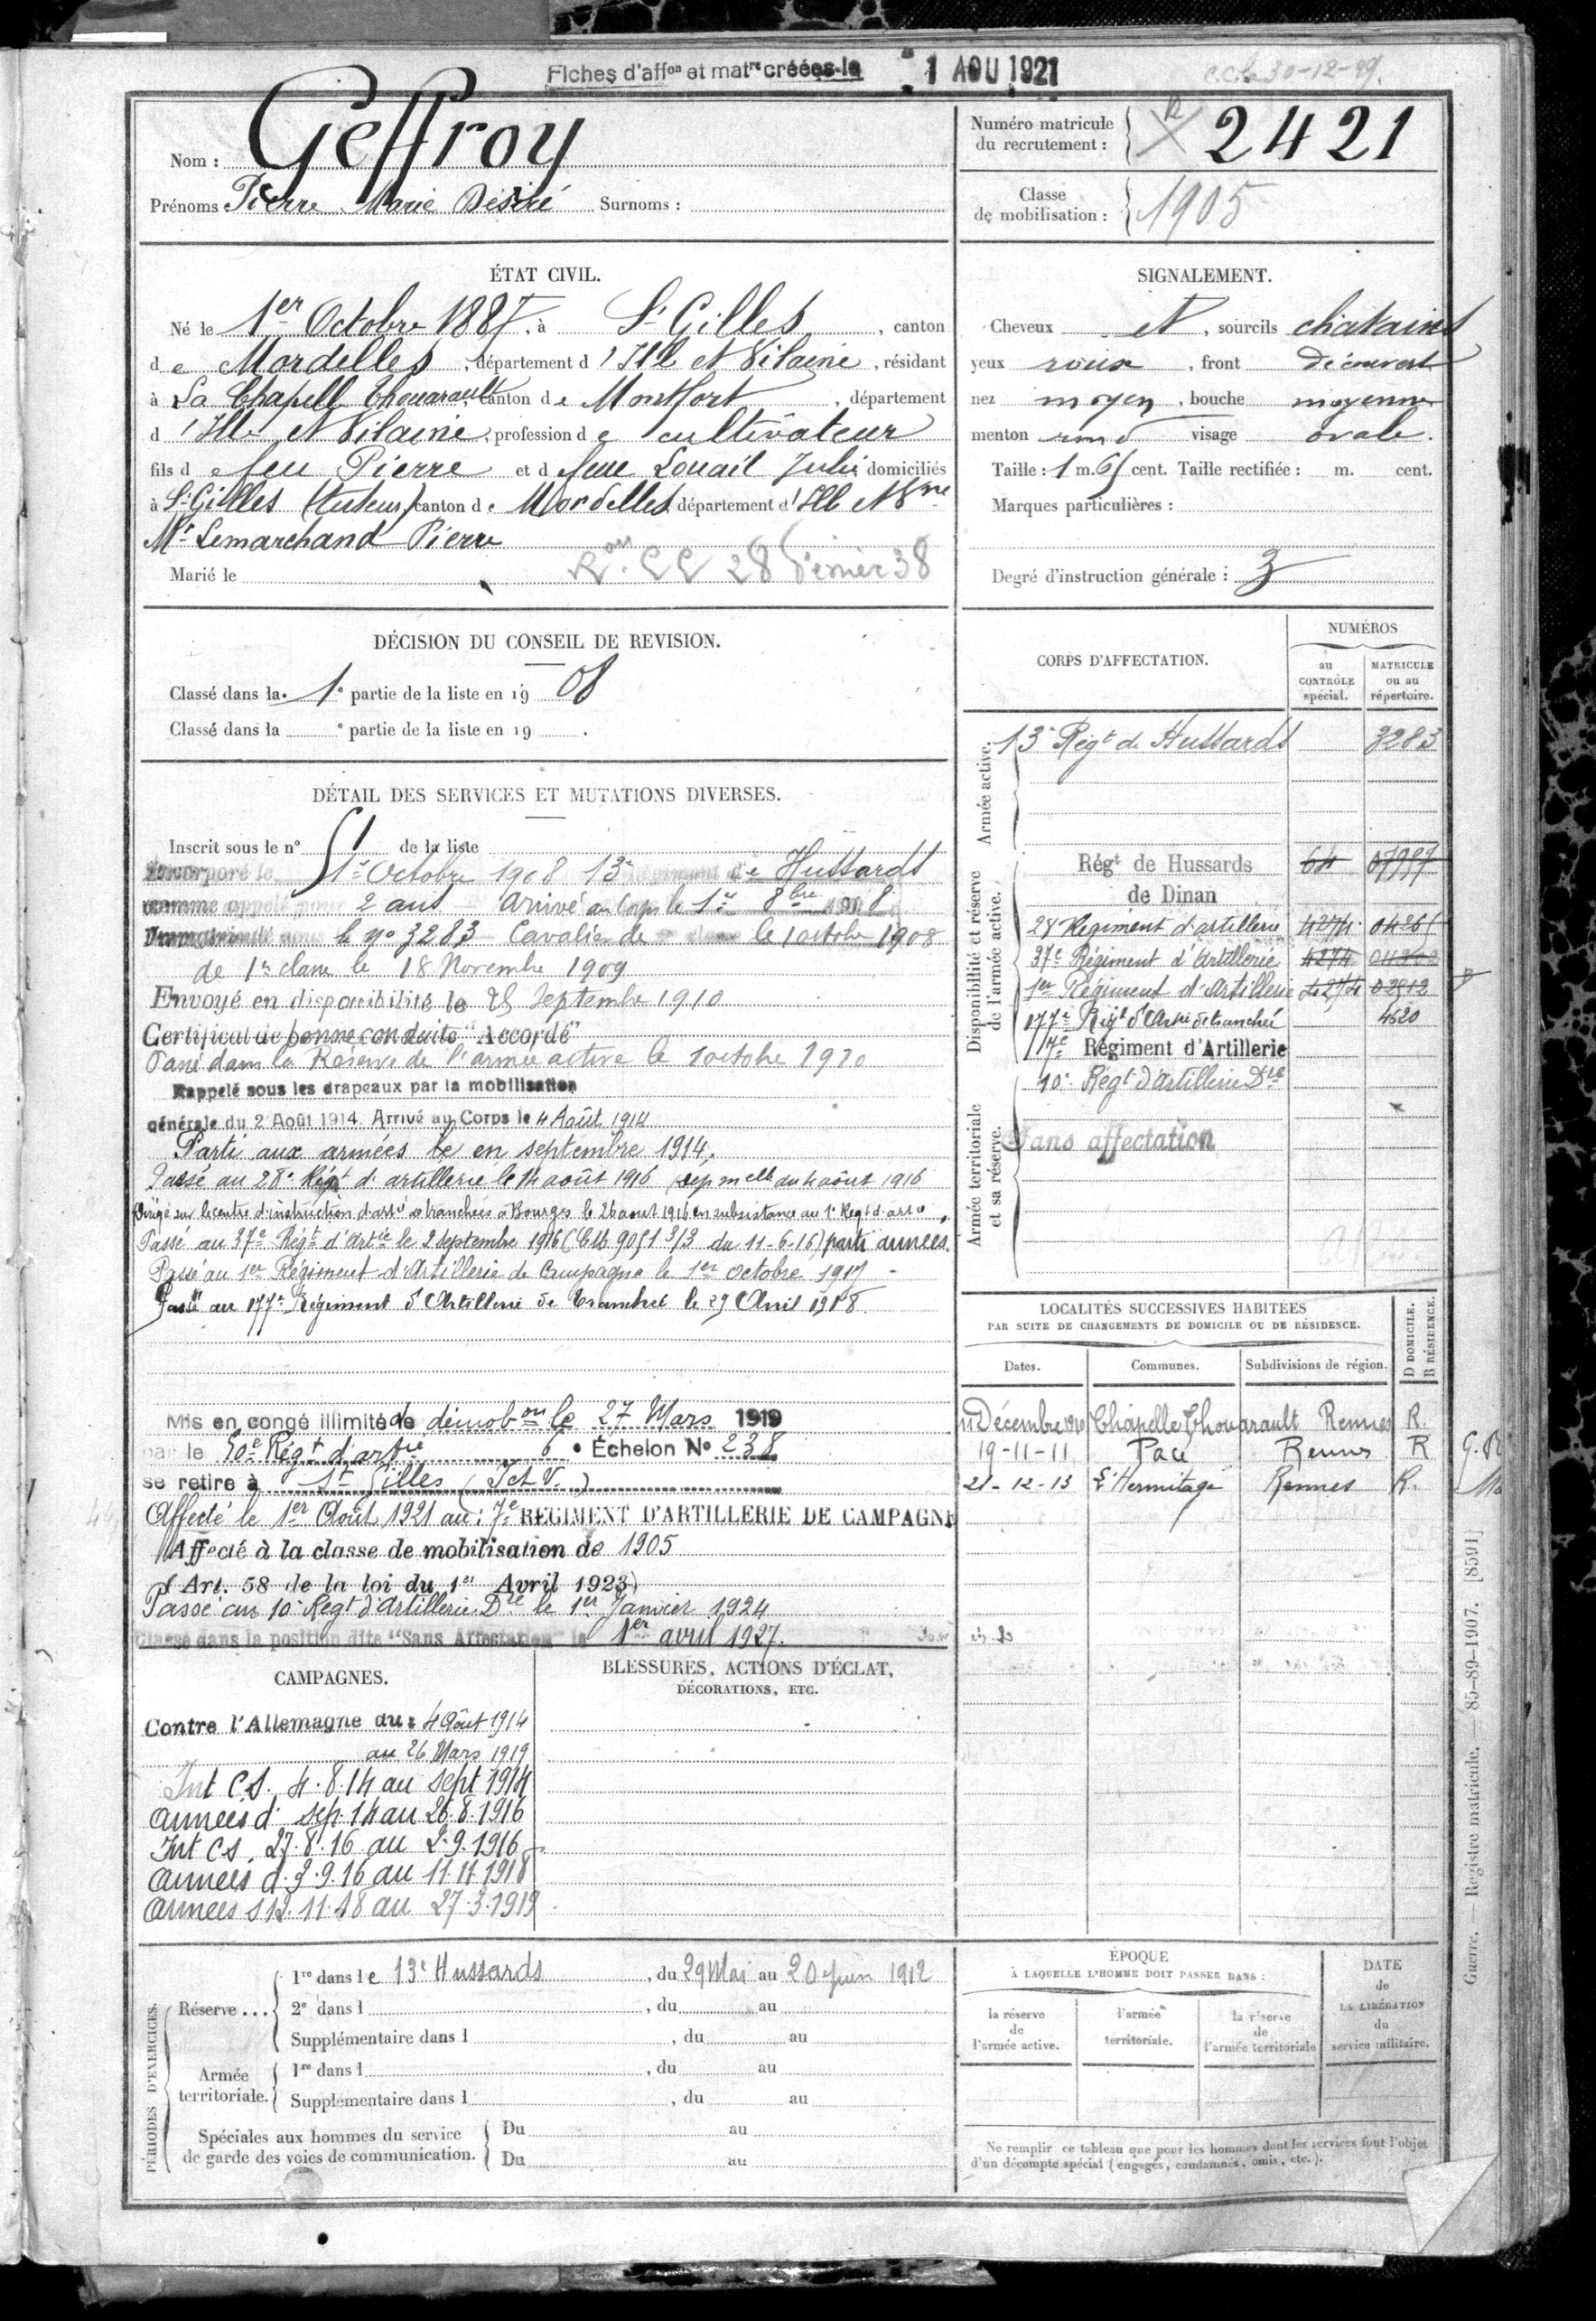 Fiches d'affon et matre créées le 1 AOU 1921
c.c.le 30-12-
Nom : Geffroy
Prénoms : Pierre Marie Désiré Surnoms :
Numéro matricule du recrutement : 2421
Classe de mobilisation : 1905
ÉTAT CIVIL.
Né le 1er Octobre 1887, à St Gilles, canton
de Mordelles, département d'Ille et Vilaine, résidant
à La Chapelle Thouarault, canton de Montfort, département
d'Ille et Vilaine, profession de cultivateur
fils de feu Pierre et de feue Louail Julie domiciliés
à St Gilles (tuteur) canton de Mordelles, département d'Ill et Vne
Mr Lemarchand Pierre
Marié le
28 38
SIGNALEMENT.
Cheveux et, sourcils chatains
yeux roux, front découvert
nez moyen, bouche moyenne
menton rond visage ovale.
Taille : 1 m. 65 cent. Taille rectifiée : m. cent.
Marques particulières :
Degré d'instruction générale : 3
DÉCISION DU CONSEIL DE REVISION.
Classé dans la 1e partie de la liste en 1908
Classé dans la e partie de la liste en 19 .
DÉTAIL DES SERVICES ET MUTATIONS DIVERSES.
Inscrit sous le n° 51 de la liste
Incorporé le 1er Octobre 1908 13e Régiment de Hussards
comme appelé pour 2 ans Arrivé au Corps le 1er 8bre 1908
Immatriculé sous le No 3283 Cavalier de le 1 octobre 1908
de 1re classe le 18 Novembre 1909
Envoyé en disponibilité le 25 Septembre 1910
Certificat de bonne conduite "Accordé"
Passé dans la Réserve de l'armée active le 1 octobre 1910
Rappelé sous les drapeaux par la mobilisation
générale du 2 Août 1914. Arrivé au Corps le 4 Août 1914
Parti aux armées le en septembre 1914.
Passé au 28e Régt d'artillerie le 14 août 1916 (dep melle du 4 août 1916
Dirigé sur le centre d'instruction d'artie de tranchées à Bourges le 26 aout 1916 en subsistance au 1e Regt d'artie
Passé au 37e Régt d'Artie le 2 septembre 1916 (C.M. 9051 3/3 du 11-6-16) parti armées.
Passé au 1er Régiment d'Artillerie de Campagne le 1er octobre 1917
Passé au 177e Régiment d'Artillerie de tranchée le 29 Avril 1918.
Mis en congé illimité de démobon le 27 Mars 1919
par le 50e Régt d'artie 6e Échelon No 238
se retire à St Gilles (I et V.)
Affecté le 1er Août 1921 au : 7e RÉGIMENT D'ARTILLERIE DE CAMPAGNE
Affecté à la classe de mobilisation de 1905
(Art. 58 de la loi du 1er Avril 1923)
Passé au 10e Régt d'Artillerie Dre le 1er Janvier 1924
Classé dans la position dite "Sans Affectation" le 1er avril 1927.
CORPS D'AFFECTATION.
NUMÉROS
au CONTRÔLE spécial.
MATRICULE ou au répertoire.
Armée active.
13e Régt de Hussards 3283
Disponibilité et réserve de l'armée active.
Régt de Hussards 64
de Dinan
28 Régiment d'artillerie 4274 04265
37e Régiment d'Artillerie 4274
1er Régiment d'Artillerie 4274
177e Régt d'Artie de tranchée 4620
7e Régiment d'Artillerie
Armée territoriale et sa réserve.
10e Régt d'Artillerie Dre
Sans affectation
LOCALITÉS SUCCESSIVES HABITÉES
PAR SUITE DE CHANGEMENTS DE DOMICILE OU DE RÉSIDENCE.
Dates. Communes. Subdivisions de région. D DOMICILE. R RÉSIDENCE.
11 Décembre 1910 Chapelle Thouarault Rennes R.
19-11-11 Pacé Rennes R
21-12-13 L'Hermitage Rennes R.
CAMPAGNES.
Contre l'Allemagne du : 4 Août 1914
au 26 Mars 1919
Int C.S. 4.8.14 au sept 1914
armées d. sep. 14 au 26.8.1916
Int C S. 27.8.16 au 2.9.1916
armées d. 3.9.16 au 11.11.1918
armées s 12.11.18 au 27.3.1919
BLESSURES, ACTIONS D'ÉCLAT,
DÉCORATIONS, ETC.
PÉRIODES D'EXERCICES.
Réserve ...
1re dans le 13e Hussards, du 29 Mai au 20 Juin 1912
2e dans l , du au
Supplémentaire dans l , du au
Armée territoriale.
1re dans l , du au
Supplémentaire dans l , du au
Spéciales aux hommes du service
de garde des voies de communication.
Du au
Du au
ÉPOQUE
À LAQUELLE L'HOMME DOIT PASSER DANS :
la réserve de l'armée active.
l'armée territoriale.
la réserve de l'armée territoriale
DATE de LA LIBÉRATION du service militaire.
Ne remplir ce tableau que pour les hommes dont les services font l'objet
d'un décompte spécial (engagés, condamnés, omis, etc.).
Guerre. — Registre matricule. — 85-89-1907. [8591]